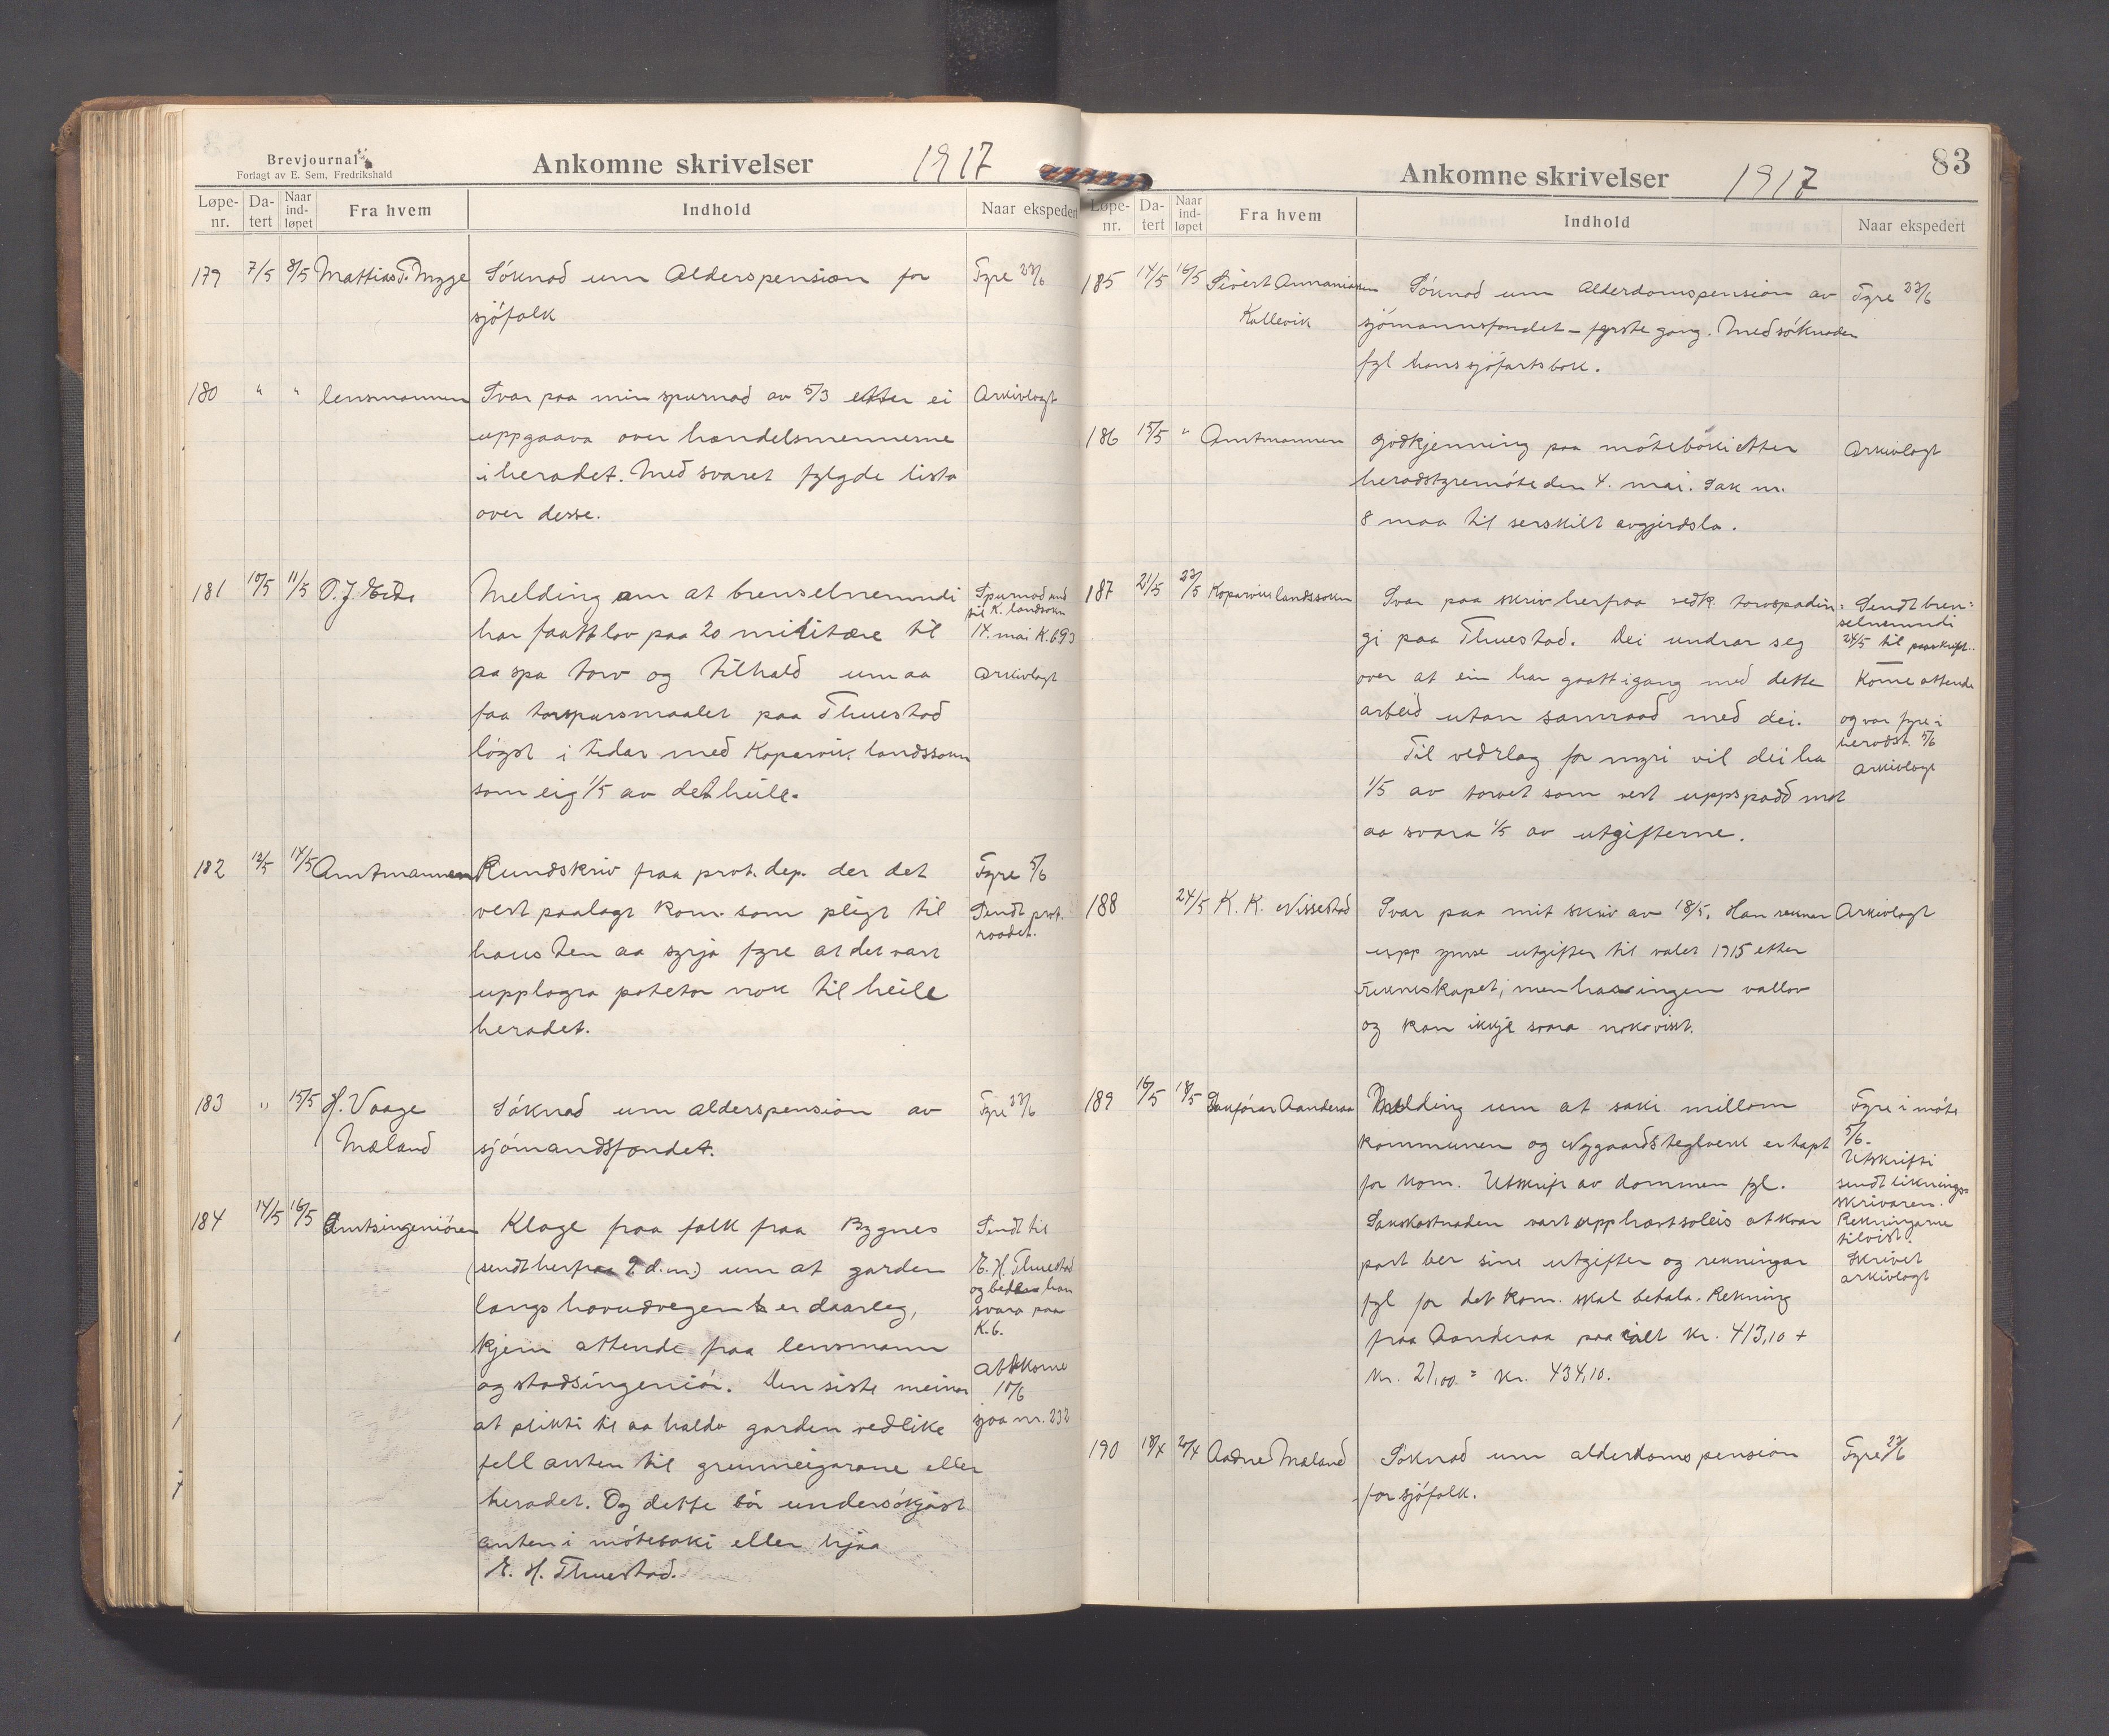 Brevjournal
Forlagt av E. Sem, Fredrikshald
Ankomne skrivelser 1917
Løpe-nr. Da-tert Naar ind-løpet Fra hvem Indhold Naar ekspedert
179 7/5 8/5 Mattias T. Mygge Söknad um Alderspension for Fyre 23/6
sjöfolk
180 " " lensmannen Svar paa min spurnad av 5/3 etter ei Arkivlagt
uppgaava over handelsmennerne
i heradet. Med svaret fylgde lista
over desse.
181 10/5 11/5 O. J. Eide Melding om at brenselnemndi Spurnad und
har faatt lov paa 20 militære til til K. landsokn
14. mai K. 693
aa spa torv og tilhald um aa Arkivlagt
faa torspursmaalet paa Thuestad
løyst i tidar med Kopervik landssokn
som eig 1/5 av det heile.
182 12/5 14/5 Amtmannen Rundskriv fraa prov. dep. der det Fyre 5/6
vert paalagt kom. som pligt til Sendt prov.
raadet.
hausten aa syrja fyre at det vart
upplagra poteter nok til heile
heradet.
183 " 15/5 H. Vaage Söknad um alderspension av Fyre 23/6
Mæland sjömandsfondet.
184 14/5 16/5 Amtsingeniören Klage fraa folk fraa Bygnes Sendt til
(sendt herfraa 9. d.m.) um at garden E. H. Thuestad
og beden han
langs hovudvegen er daarleg, svara paa
K. 6.
kjem attende fraa lensmann
Attkome
og stadsingeniör. Den siste meinar 10/6
at plikti til aa halda garden vedlike sjaa nr. 232
fell anten til grunneigarane eller
heradet. Og dette bör undersökjast
anten i möteboki eller hjaa
E. H. Thuestad.
Ankomne skrivelser 1917 83
Løpe-nr. Da-tert Naar ind-løpet Fra hvem Indhold Naar ekspedert
185 14/5 16/5 Sivert Annaniassen Söknad um Alderdomspension av Fyre 23/6
Kallevik sjömannsfondet - fyrste gong. Med söknaden
fyl hans sjöfartsbok.
186 15/5 " Amtmannen Godkjenning paa möteboki etter Arkivlagt
heradstyremöte den 4. mai. Sak nr.
8 maa til serskilt avgjerdsla.
187 21/5 23/5 Kopervik landssokn Svar paa skriv herfraa vedk. torvspadin- Sendt bren-
selnemndi
gi paa Thuestad. Dei undrar seg 24/5 til paaskrift.
over at ein har gaatt igang med dette Kome attende
arbeid utan samraad med dei. og var fyre i
heradst. 5/6
Til vedrlag for myri vil dei ha Arkivlagt
1/5 av torvet som vert uppspadd mot
aa svara 1/5 av utgifterne.
188 24/5 K. K. Nissestad Svar paa mit skriv av 18/5. Han reknar Arkivlagt
upp ymse utgifter til valet 1915 etter
rekneskapet; men har ingen vallov
og kan ikkje svara noko visst.
189 16/5 18/5 Sakförar Aanderaa Melding um at saki millom Fyre i möte
kommunen og Nygaards teglverk er tapt 5/6.
for kom. Utskrift av dommen fyl. Utskrifti
sendt liknings-
skrivaren.
Sakskostnaden vart upphævt soleis at kvar Rekningarne
tilvist.
part ber sine utgifter og rekningar Skrivet
arkivlagt
fyl for det kom. skal betala. Rekning
fraa Aanderaa paa ialt kr. 413,10 +
kr. 21,00 = kr. 434,10.
190 18/4 20/4 Aadne Mæland Söknad um alderdomspension Fyre 23/6
for sjöfolk.